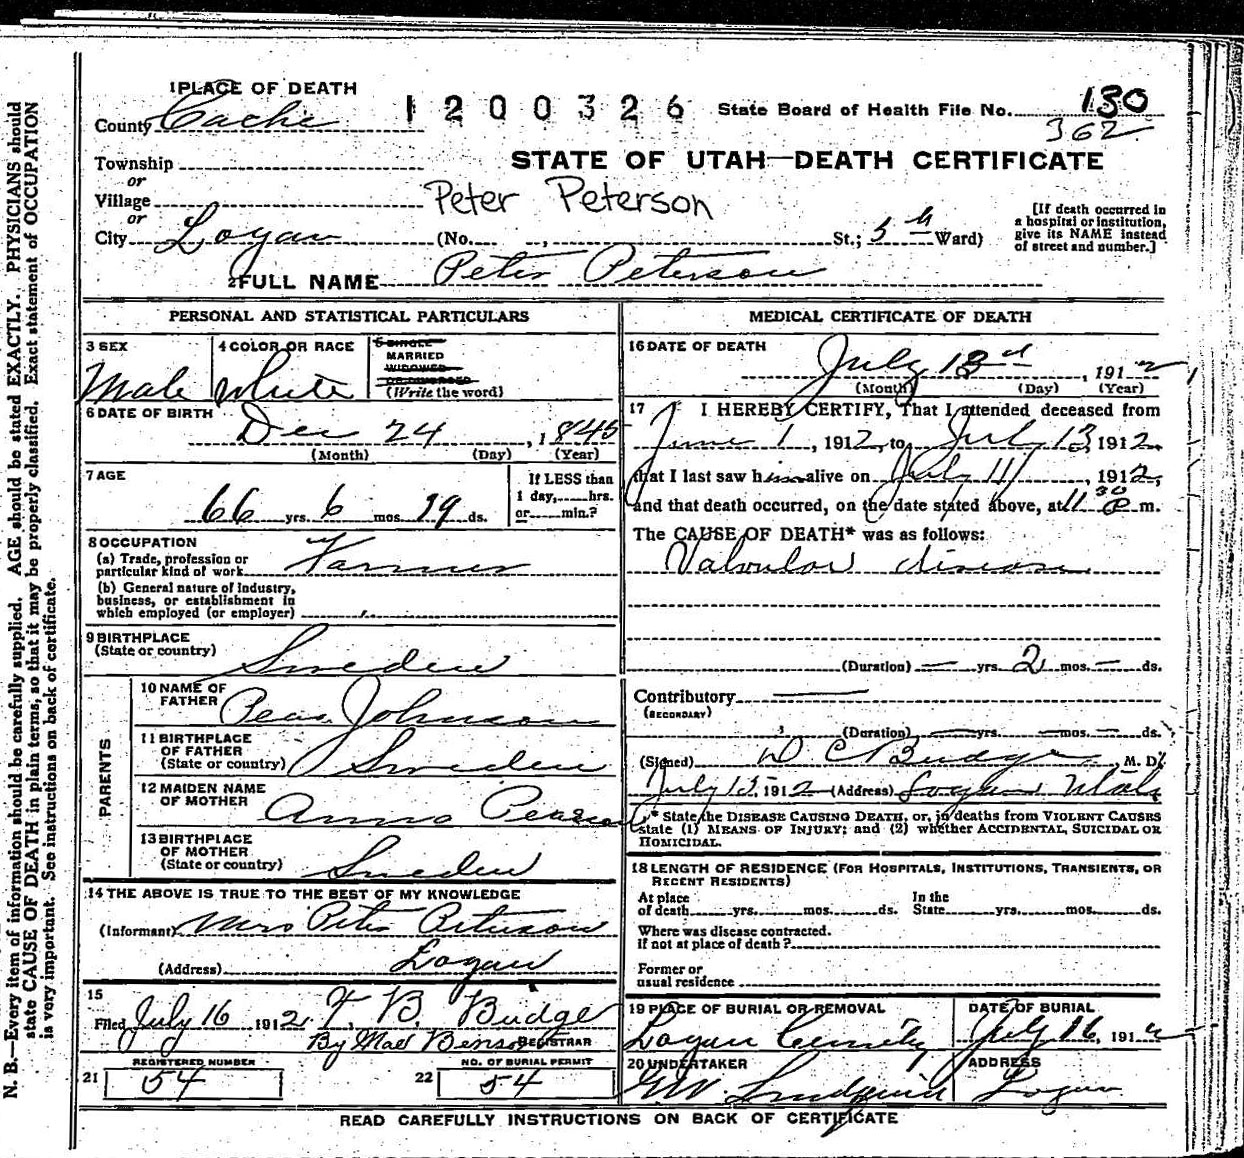 1 PLACE OF DEATH
County Cache
1200326
State Board of Health File No. 130
362
Township
or
STATE OF UTAH—DEATH CERTIFICATE
Village
or
Peter Peterson
City Logan (No. , St.; 5th Ward)
[If death occurred in a hospital or institution, give its NAME instead of street and number.]
2 FULL NAME Peter Peterson
PERSONAL AND STATISTICAL PARTICULARS
3 SEX
Male
4 COLOR OR RACE
White
5 SINGLE
MARRIED
WIDOWED
OR DIVORCED
(Write the word)
6 DATE OF BIRTH
Dec 24, 1845
(Month) (Day) (Year)
7 AGE
66 yrs. 6 mos. 19 ds.
If LESS than
1 day, hrs.
or min.?
8 OCCUPATION
(a) Trade, profession or
particular kind of work Farmer
(b) General nature of industry,
business, or establishment in
which employed (or employer)
9 BIRTHPLACE
(State or country) Sweden
PARENTS
10 NAME OF
FATHER Johnson
11 BIRTHPLACE
OF FATHER
(State or country) Sweden
12 MAIDEN NAME
OF MOTHER Anna
13 BIRTHPLACE
OF MOTHER
(State or country) Sweden
14 THE ABOVE IS TRUE TO THE BEST OF MY KNOWLEDGE
(Informant) Mrs Peter Peterson
(Address) Logan
15
Filed July 16 1912 F. B. Budge
By Mae Benson REGISTRAR
REGISTERED NUMBER
21 54
NO. OF BURIAL PERMIT
22 54
MEDICAL CERTIFICATE OF DEATH
16 DATE OF DEATH
July 13, 1912
(Month) (Day) (Year)
17 I HEREBY CERTIFY, That I attended deceased from
June 1, 1912, to July 13, 1912
that I last saw him alive on July 11, 1912,
and that death occurred, on the date stated above, at 11 30 P m.
The CAUSE OF DEATH* was as follows:
Valvular disease
(Duration) — yrs. 2 mos. — ds.
Contributory
(SECONDARY)
(Duration) — yrs. — mos. — ds.
(Signed) D C Budge, M. D.
July 15, 1912 (Address) Logan Utah
* State the DISEASE CAUSING DEATH, or, in deaths from VIOLENT CAUSES
state (1) MEANS OF INJURY; and (2) whether ACCIDENTAL, SUICIDAL OR
HOMICIDAL.
18 LENGTH OF RESIDENCE (FOR HOSPITALS, INSTITUTIONS, TRANSIENTS, OR
RECENT RESIDENTS)
At place
of death yrs. mos. ds.
In the
State yrs. mos. ds.
Where was disease contracted.
if not at place of death?
Former or
usual residence
19 PLACE OF BURIAL OR REMOVAL
Logan Cemetery
DATE OF BURIAL
July 16, 1912
20 UNDERTAKER
ADDRESS
Logan
READ CAREFULLY INSTRUCTIONS ON BACK OF CERTIFICATE
N. B.—Every item of information should be carefully supplied. AGE should be stated EXACTLY. PHYSICIANS should
state CAUSE OF DEATH in plain terms, so that it may be properly classified. Exact statement of OCCUPATION
is very important. See instructions on back of certificate.